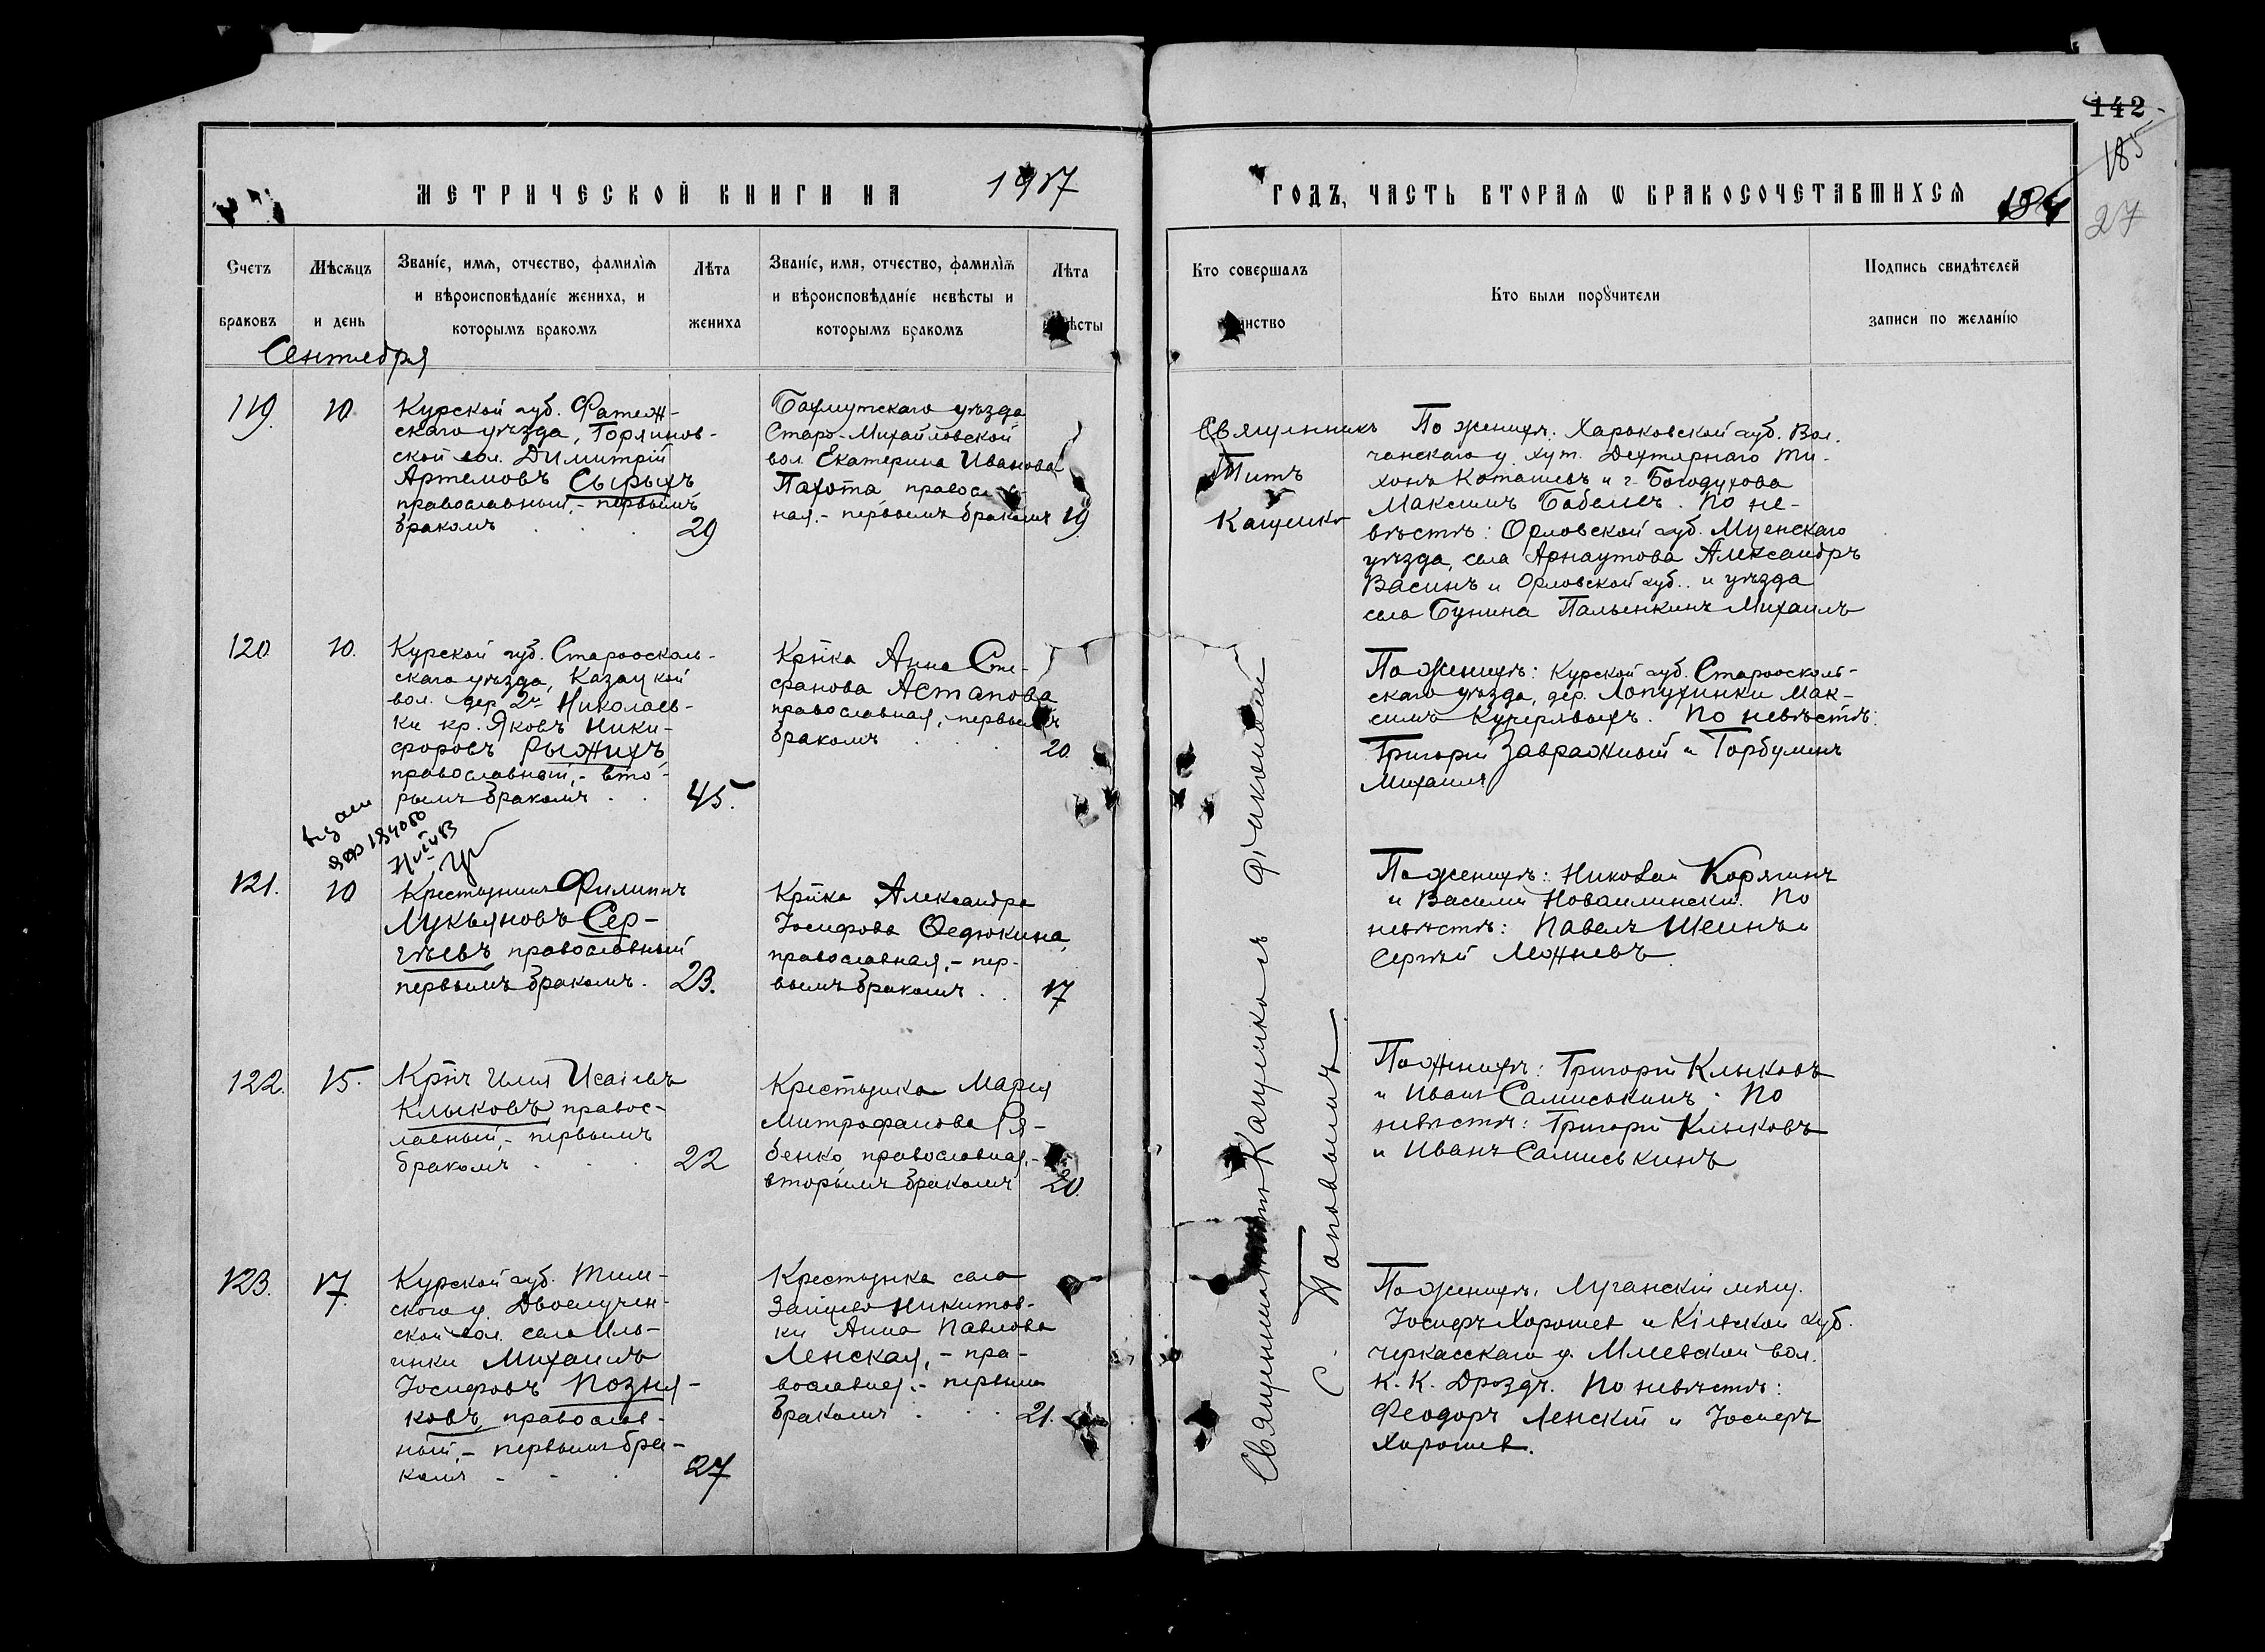 142
185
27
МЕТРИЧЕСКОЙ КНИГИ НА 1917
ГОДЪ, ЧАСТЬ ВТОРАЯ Ѡ БРАКОСОЧЕТАВШИХСЯ
Счетъ браковъ
Мѣсяцъ и день
Званіе, имя, отчество, фамилія
и вѣроисповѣданіе жениха, и
которымъ бракомъ
Лѣта
жениха
Званіе, имя, отчество, фамилія
и вѣроисповѣданіе невѣсты и
которымъ бракомъ
Лѣта
Кто совершалъ
Кто были порꙋчители
Подпись свидѣтелей
записи по желанію
Сентября
119.
10
Курской губ. Фатеж-
скаго уѣзда, Горяинов-
ской вол. Димитрій
Артемовъ Сырыхъ
православный,- первымъ
бракомъ . . .
29
Бахмутскаго уѣзда
Старо-Михайловской
вол. Екатерина Иванова
Пахота, правосл
ная.- первымъ бракомъ
19.
Священникъ
Титъ
Кащенко
По женихѣ: Харьковской губ. Вол-
чанскаго у. хут. Дехтярнаго Ти-
хонъ Коташевъ и г. Богодухова
Максимъ Бабешъ. По не-
вѣстѣ: Орловской губ. Мценскаго
уѣзда, села Арнаутова Александръ
Васинъ и Орловской губ. и уѣзда
села Бунина Пальенкинъ Михаилъ
120.
10.
Курской губ. Старооскаль-
скаго уѣзда, Казацкой
вол. дер. 2й Николаев-
ки кр. Яковъ Ники-
форовъ Рыжихъ,
православный,- вто-
рымъ бракомъ . .
45.
Крⷭ҇тка Анна Сте-
фанова Астапова
православная, первымъ
бракомъ . . .
20.
По женихѣ: Курской губ. Старооскаль-
скаго уѣзда, дер. Лопухинки Мак-
симъ Кучерявыхъ. По невѣстѣ:
Григорій Завражный и Горбулинъ
Михаилъ
121.
10
Крестьянинъ Филиппъ
Лукьяновъ Сер-
гѣевъ православный
первымъ бракомъ.
23.
Крⷭ҇тка Александра
Іосифова Ѳедюкина,
православная,- пер-
вымъ бракомъ . .
17
По женихѣ: Николай Корягинъ
и Василій Новоилинскій. По
невѣстѣ: Павелъ Шеинъ и
Сергѣй Можневъ
122.
15.
Крⷭ҇тнъ Илія Исаіевъ
Клыковъ правос-
лавный,- первымъ
бракомъ . . .
22
Крестьянка Марія
Митрофанова Ря-
бенко православная,-
вторымъ бракомъ
20.
По женихѣ: Григорій Клыковъ
и Иванъ Самиськинъ. По
невѣстѣ: Григорій Клыковъ
и Иванъ Самиськинъ
123.
17.
Курской губ. Тим-
скаго у. Двоелучен-
ской вол. села Иль-
инки Михаилъ
Іосифовъ Позня-
ковъ, православ-
ный,- первымъ бра-
комъ - - .
27
Крестьянка села
Зайцево Никитов-
ки Анна Павлова
Ленская,- пра-
вославная.- первымъ
бракомъ . . .
21.
По женихѣ, Луганскій мѣщ.
Іосифъ Хорошев и Кіевской губ.
черкасскаго у. Млеевской вол.
К. К. Дроздъ. По невѣстѣ:
Феодоръ Ленскій и Іосифъ
Хорошев.
Священникъ Титъ Кащенко съ діакономъ
С. Поповымъ